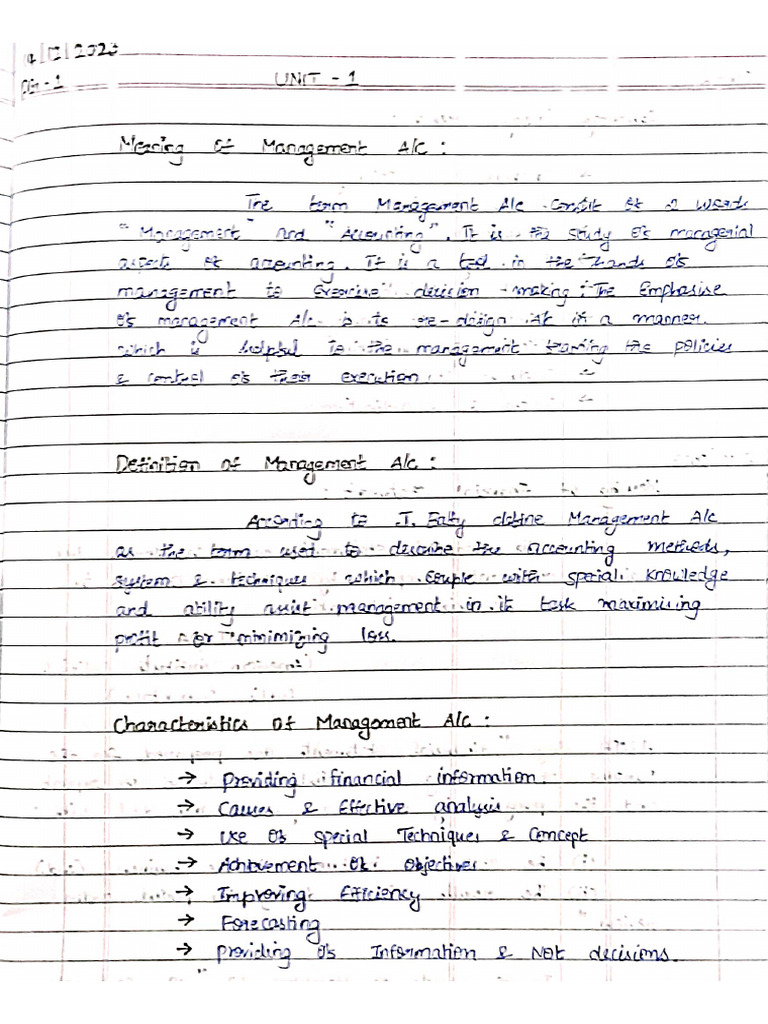 UNIT - 1
Meaning of Management A/c :
The term Management A/c consist of 2 words
"Management" and "Accounting". It is the study of managerial
aspects of accounting. It is a tool in the hands of
management to exercise decision making. The Emphasise
of management A/c is to re-design A/c in a manner
which is helpful to the management framing the policies
& control of their execution
Definition of Management A/c :
According to J. Batty define Management A/c
as the term used to describe the accounting methods,
system & techniques which couple with special knowledge
and ability assist management in its task maximising
profit or minimizing loss.
Characteristics of Management A/c :
→ Providing financial information.
→ Causes & Effective analysis
→ Use of special Techniques & Concept
→ Achievement of objectives
→ Improving Efficiency
→ Forecasting
→ Providing of Information & Not decisions.